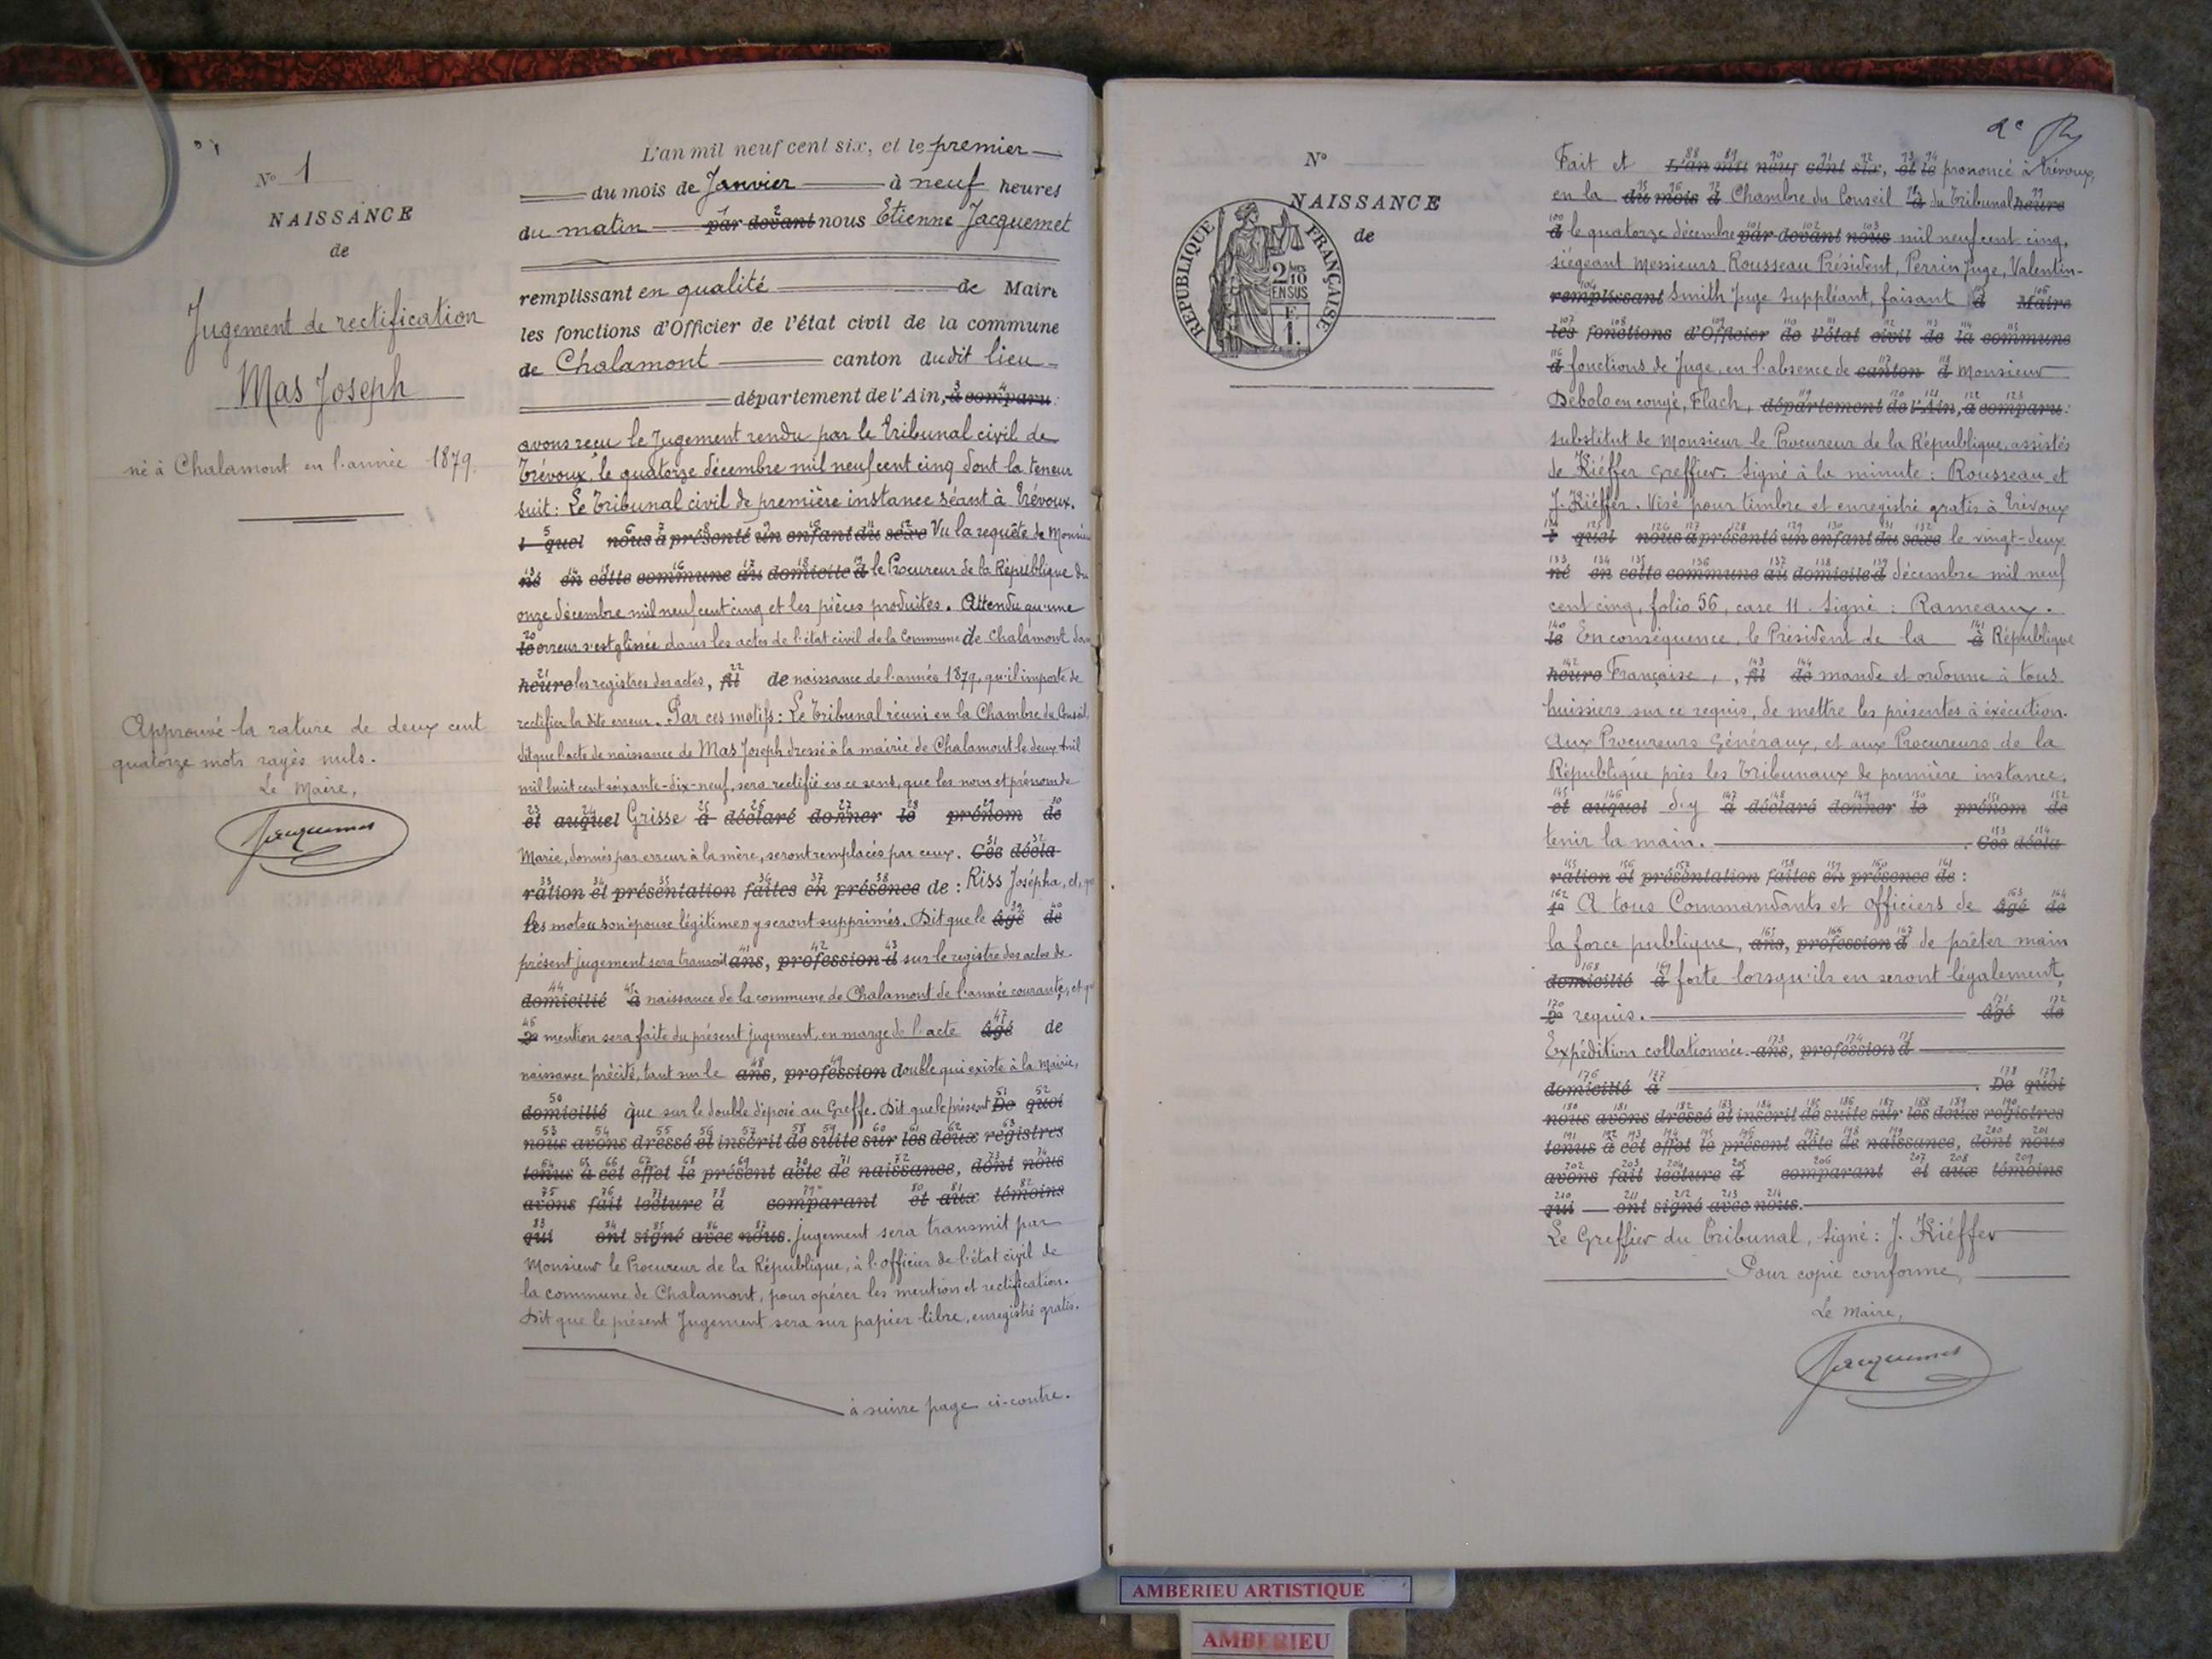 N° 1
NAISSANCE
de
Jugement de rectification
Mas Joseph
né à Chalamont en l'année 1879.
Approuvé la rature de deux cent
quatorze mots rayés nuls.
Le Maire,
Jacquemet
L'an mil neuf cent six, et le premier
du mois de Janvier à neuf heures
du matin par devant nous Etienne Jacquemet
remplissant en qualité de Maire
les fonctions d'Officier de l'état civil de la commune
de Chalamont canton dudit lieu
département de l'Ain, a comparu :
avons reçu le Jugement rendu par le Tribunal civil de
Trévoux, le quatorze décembre mil neuf cent cinq dont la teneur
suit : Le Tribunal civil de première instance séant à Trévoux.
l quel nous a présenté un enfant du sexe Vu la requête de Monsieur
né en cette commune au domicile d le Procureur de la République du
onze décembre mil neuf cent cinq et les pièces produites. Attendu qu'une
le erreur s'est glissée dans les actes de l'état civil de la Commune de Chalamont dans
heure les registres des actes, fil de naissance de l'année 1879, qu'il importe de
rectifier la dite erreur. Par ces motifs : Le Tribunal réuni en la Chambre du Conseil,
dit que l'acte de naissance de Mas Joseph dressé à la mairie de Chalamont le deux Avril
mil huit cent soixante-dix-neuf, sera rectifié en ce sens, que les nom et prénom de
et auquel Grisse a déclaré donner le prénom de
Marie, donnés par erreur à la mère, seront remplacés par ceux. Ces décla-
ration et présentation faites en présence de : Riss Josépha, et, que
les mots « son épouse légitime » y seront supprimés. Dit que le âgé de
présent jugement sera transcrit ans, profession d sur le registre des actes de
domicilié à naissance de la commune de Chalamont de l'année courante, et que
2° mention sera faite du présent jugement, en marge de l'acte âgé de
naissance précité, tant sur le ans, profession double qui existe à la Mairie,
domicilié que sur le double déposé au Greffe. Dit que le présent De quoi
nous avons dressé et inscrit de suite sur les deux registres
tenus à cet effet le présent acte de naissance, dont nous
avons fait lecture à comparant et aux témoins
qui ont signé avec nous. Jugement sera transmit par
Monsieur le Procureur de la République, à l'officier de l'état civil de
la commune de Chalamont, pour opérer les mention et rectification.
Dit que le présent Jugement sera sur papier libre, enregistré gratis.
à suivre page ci-contre.
N°
NAISSANCE
de
RÉPUBLIQUE FRANÇAISE
2/10 EN SUS
F. 1.
Fait et L'an mil neuf cent six, et le prononcé à Trévoux,
en la du mois d Chambre du Conseil à du Tribunal heure
d le quatorze décembre par devant nous mil neuf cent cinq,
siégeant Messieurs Rousseau Président, Perrin Juge, Valentin-
remplissant Smith Juge Suppléant, faisant d Maire
les fonctions d'Officier de l'état civil de la commune
d fonctions de Juge, en l'absence de canton d Monsieur
Débolo en congé, Flach, département de l'Ain, a comparu :
substitut de Monsieur le Procureur de la République, assistés
de Kiéffer Greffier. Signé à la minute : Rousseau et
J. Kiéffer. Visé pour timbre et enregistré gratis à Trévoux
l quel nous a présenté un enfant du sexe le vingt-deux
né en cette commune au domicile d décembre mil neuf
cent cinq, folio 56, case 11. Signé : Rameaux.
le En conséquence, le Président de la à République
heure Française, , fil de mande et ordonne à tous
huissiers sur ce requis, de mettre les présentes à éxécution.
Aux Procureurs Généraux, et aux Procureurs de la
République près les Tribunaux de première instance,
et auquel d'y a déclaré donner le prénom de
tenir la main. . Ces décla-
ration et présentation faites en présence de :
1° A tous Commandants et officiers de âgé de
la force publique, ans, profession d de prêter main
domicilié à forte lorsqu'ils en seront légalement,
2° requis. âgé de
Expédition collationnée. ans, profession d
domicilié à . De quoi
nous avons dressé et inscrit de suite sur les deux registres
tenus à cet effet le présent acte de naissance, dont nous
avons fait lecture à comparant et aux témoins
qui ont signé avec nous.
Le Greffier du Tribunal, Signé : J. Kiéffer
Pour copie conforme,
Le Maire,
Jacquemet
AMBERIEU ARTISTIQUE
AMBERIEU